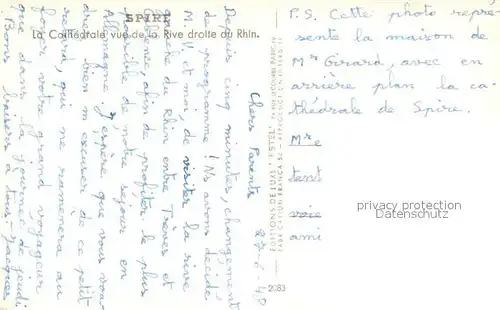 SPIRE
La Cathédrale vue de la Rive droite du Rhin.
P.S. Cette photo repré
sente la maison de
Mr Girard, avec en
arrière plan la ca-
thédrale de Spire.
Mme
tant
voie
ami
27-6-48
Chers Parents
Depuis cinq minutes, changement
de programme! Ns avons décidé
M. V. et moi de visiter la rive
gauche du Rhin entre Trèves et
Coblence, afin de profiter le plus
possible de notre séjour en
Allemagne. J'espère que vous vou-
drez bien m'excuser de ce petit
retard, qui ne ramènera au
foyer votre grand voyageur
que dans la journée de jeudi.
Bons baisers à tous. Jacques
EDITIONS DE LUXE "ESTEL"
2083
privacy protection
Datenschutz